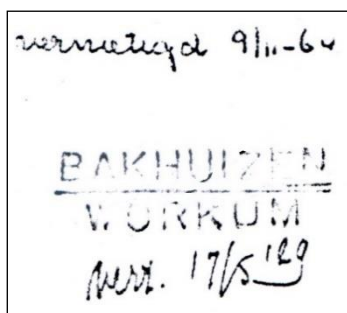 vernietigd 9/11-64
BAKHUIZEN
WORKUM
verz. 17/5 '29